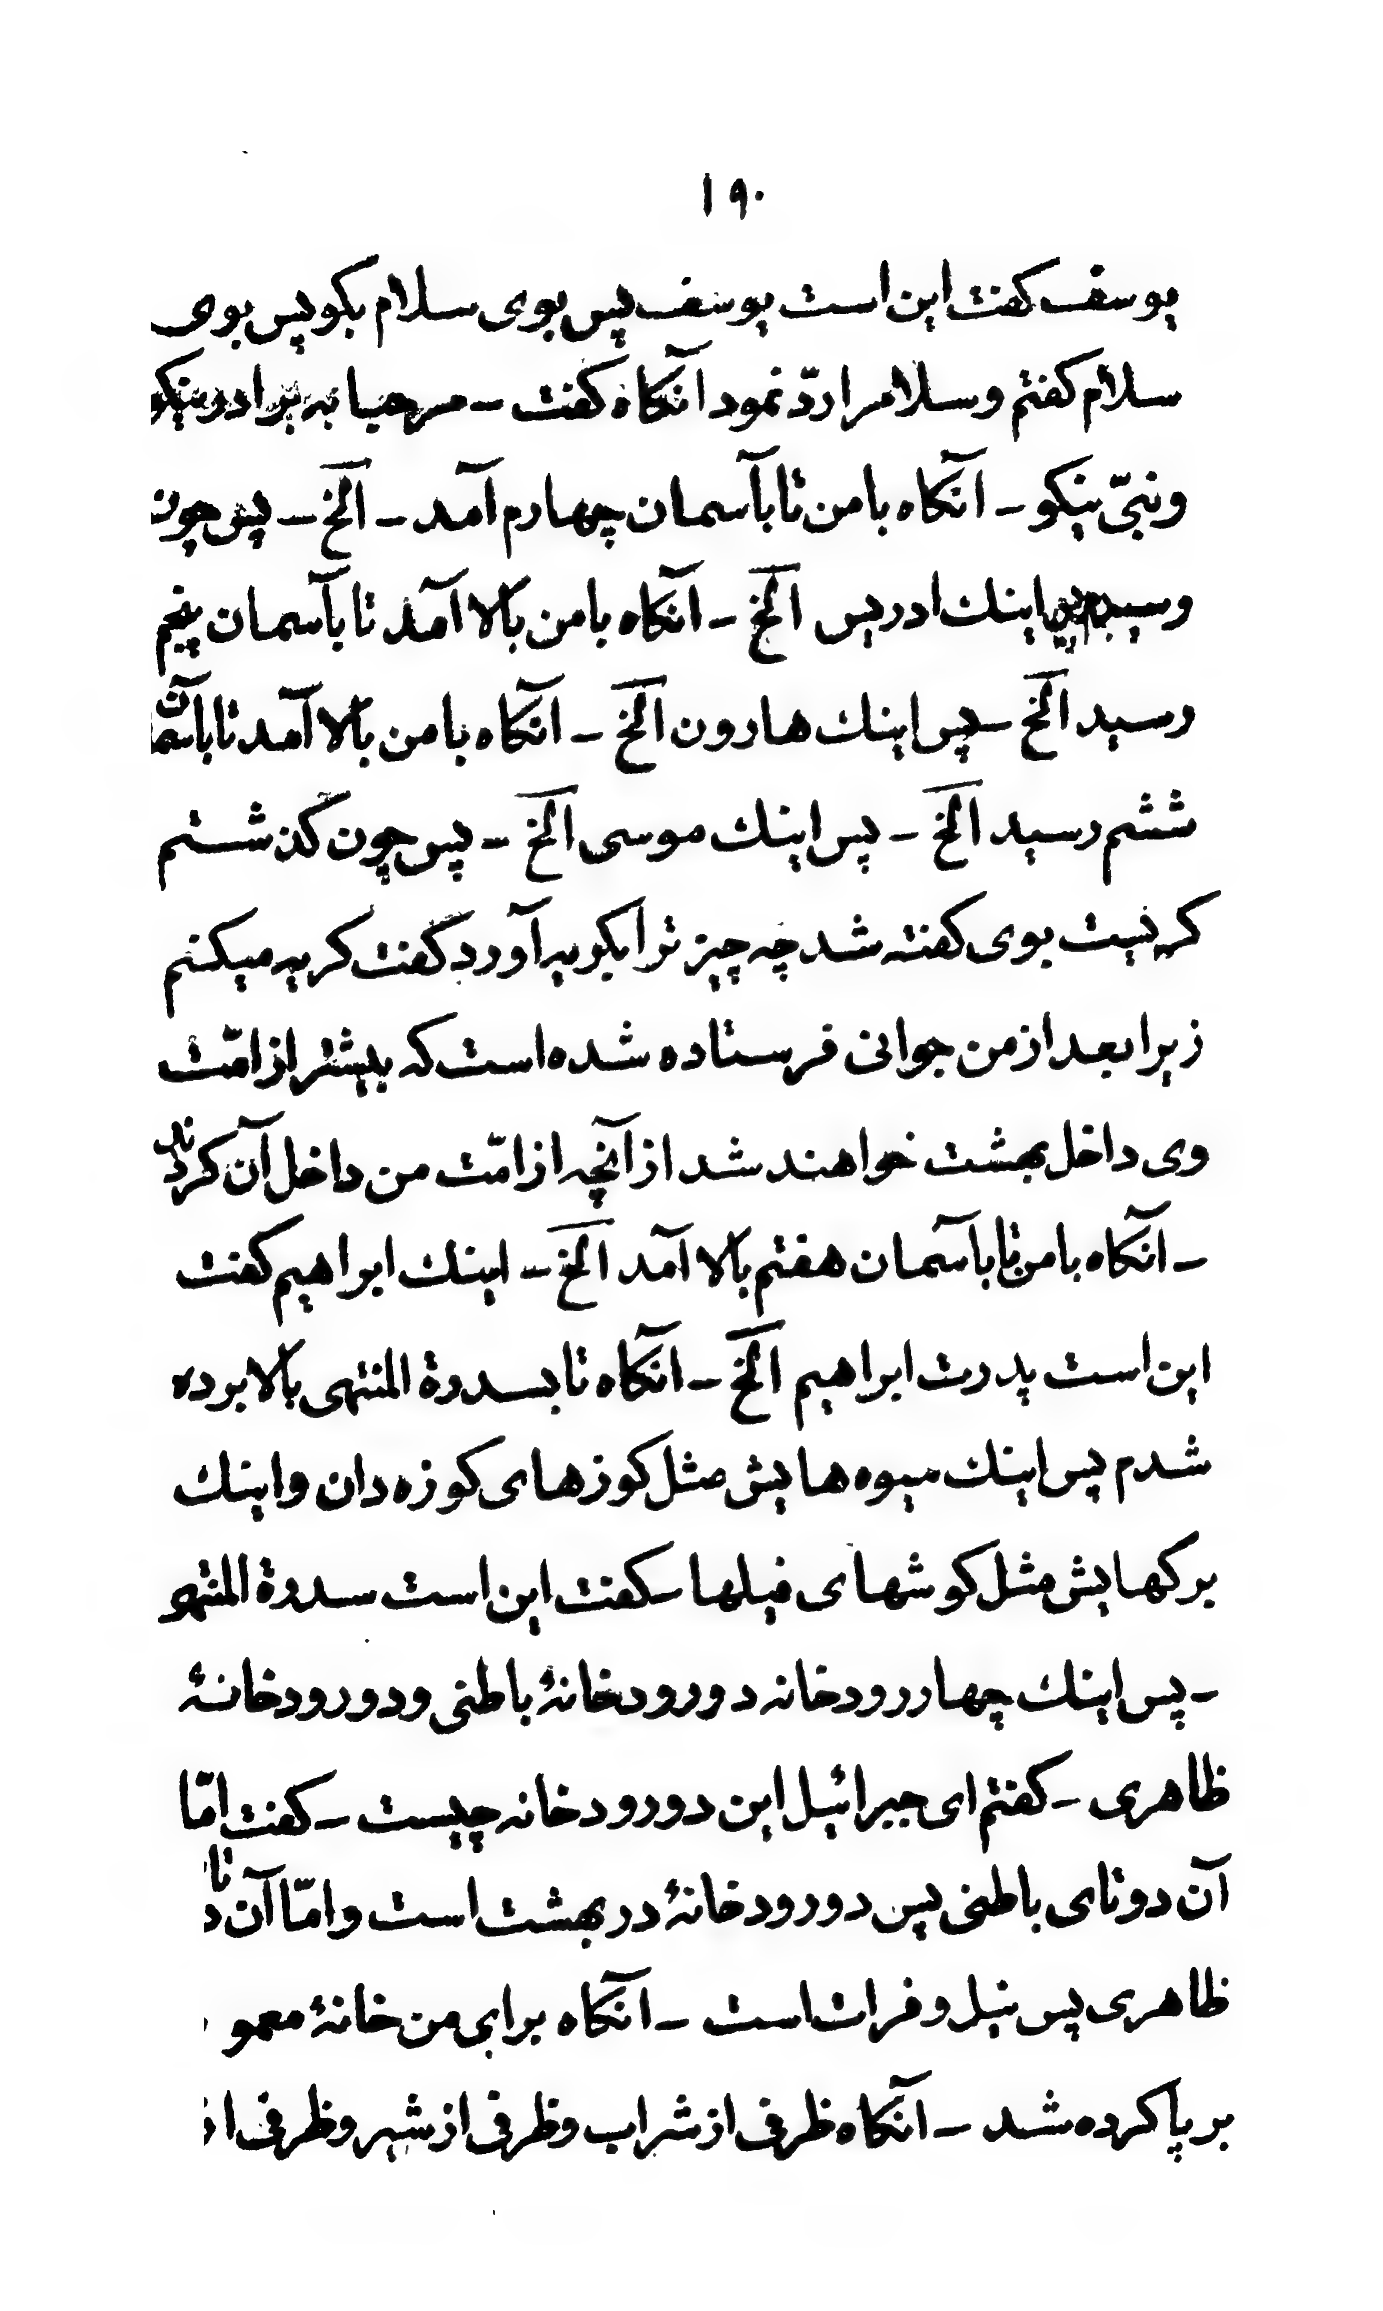 ۱۹۰
یوسف کفت این است یوسف پس بوی سلام بکو پس بوی
سلام کفتم و سلام مرا ردّ نمود انکاه کفت ـ مرحبا به برادر نیکو
و نبیّ نیکو ـ آنکاه با من تا بآسمان چهارم آمد ـ الخ ـ پس چون
اینك ادریس الخ ـ آنکاه با من بالا آمد تا بآسمان پنجم
رسید الخ ـ پس اینك هارون الخ ـ آنکاه با من بالا آمد تا بآسمان
ششم رسید الخ ـ پس اینك موسی الخ ـ پس چون کذشتم
کریست بوی کفته شد چه چیز ترا بکریه آورد کفت کریه میکنم
زیرا بعد از من جوانی فرستاده شده است که بیشتر از امّت
وی داخل بهشت خواهند شد از آنچه از امّت من داخل آن کردند
ـ آنکاه با من تا بآسمان هفتم بالا آمد الخ ـ اینك ابراهیم کفت
این است پدرت ابراهیم الخ ـ آنکاه تا بسدرة المنتهی بالا برده
شدم پس اینك میوه هایش مثل کوزهای کوزه دان و اینك
برکهایش مثل کوشهای فیلها ـ کفت این است سدرة المنتهی
ـ پس اینك چهار رودخانه دو رودخانهٔ باطنی و دو رودخانهٔ
ظاهری ـ کفتم ای جبرائیل این دو رودخانه چیست ـ کفت امّا
آن دو تای باطنی پس دو رودخانهٔ در بهشت است و امّا آن
ظاهری پس نیل و فرات است ـ آنکاه برای من خانهٔ معمو
بر پا کرده شد ـ آنکاه ظرفی از شراب و ظرفی از شیر و ظرفی از